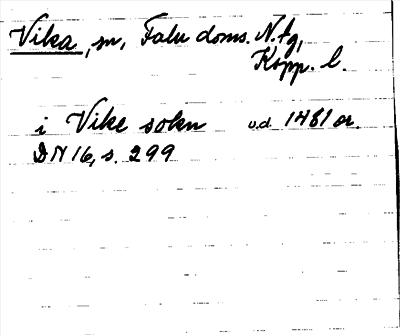 Vika, sn, Falu doms. N. tg,
Kopp. l.
i Vike sokn u.d. 1481 or.
DN 16, s. 299